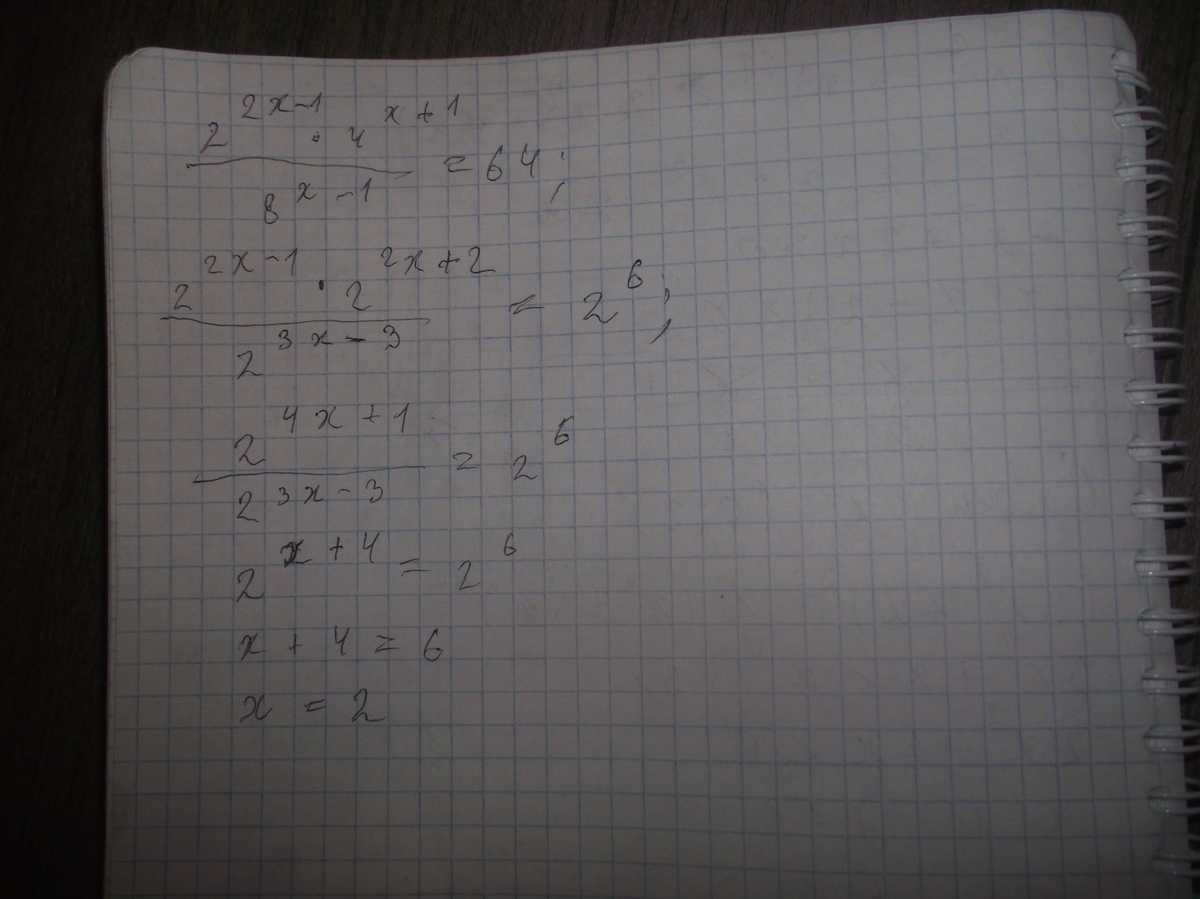 2^(2x-1) · 4^(x+1) / 8^(x-1) = 64;
2^(2x-1) · 2^(2x+2) / 2^(3x-3) = 2^6;
2^(4x+1) / 2^(3x-3) = 2^6
2^(x+4) = 2^6
x + 4 = 6
x = 2